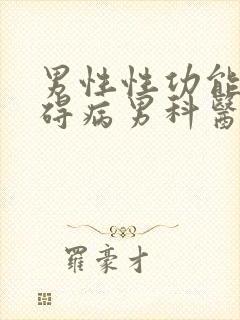 男性性功能
碍病男科醫
羅豪才